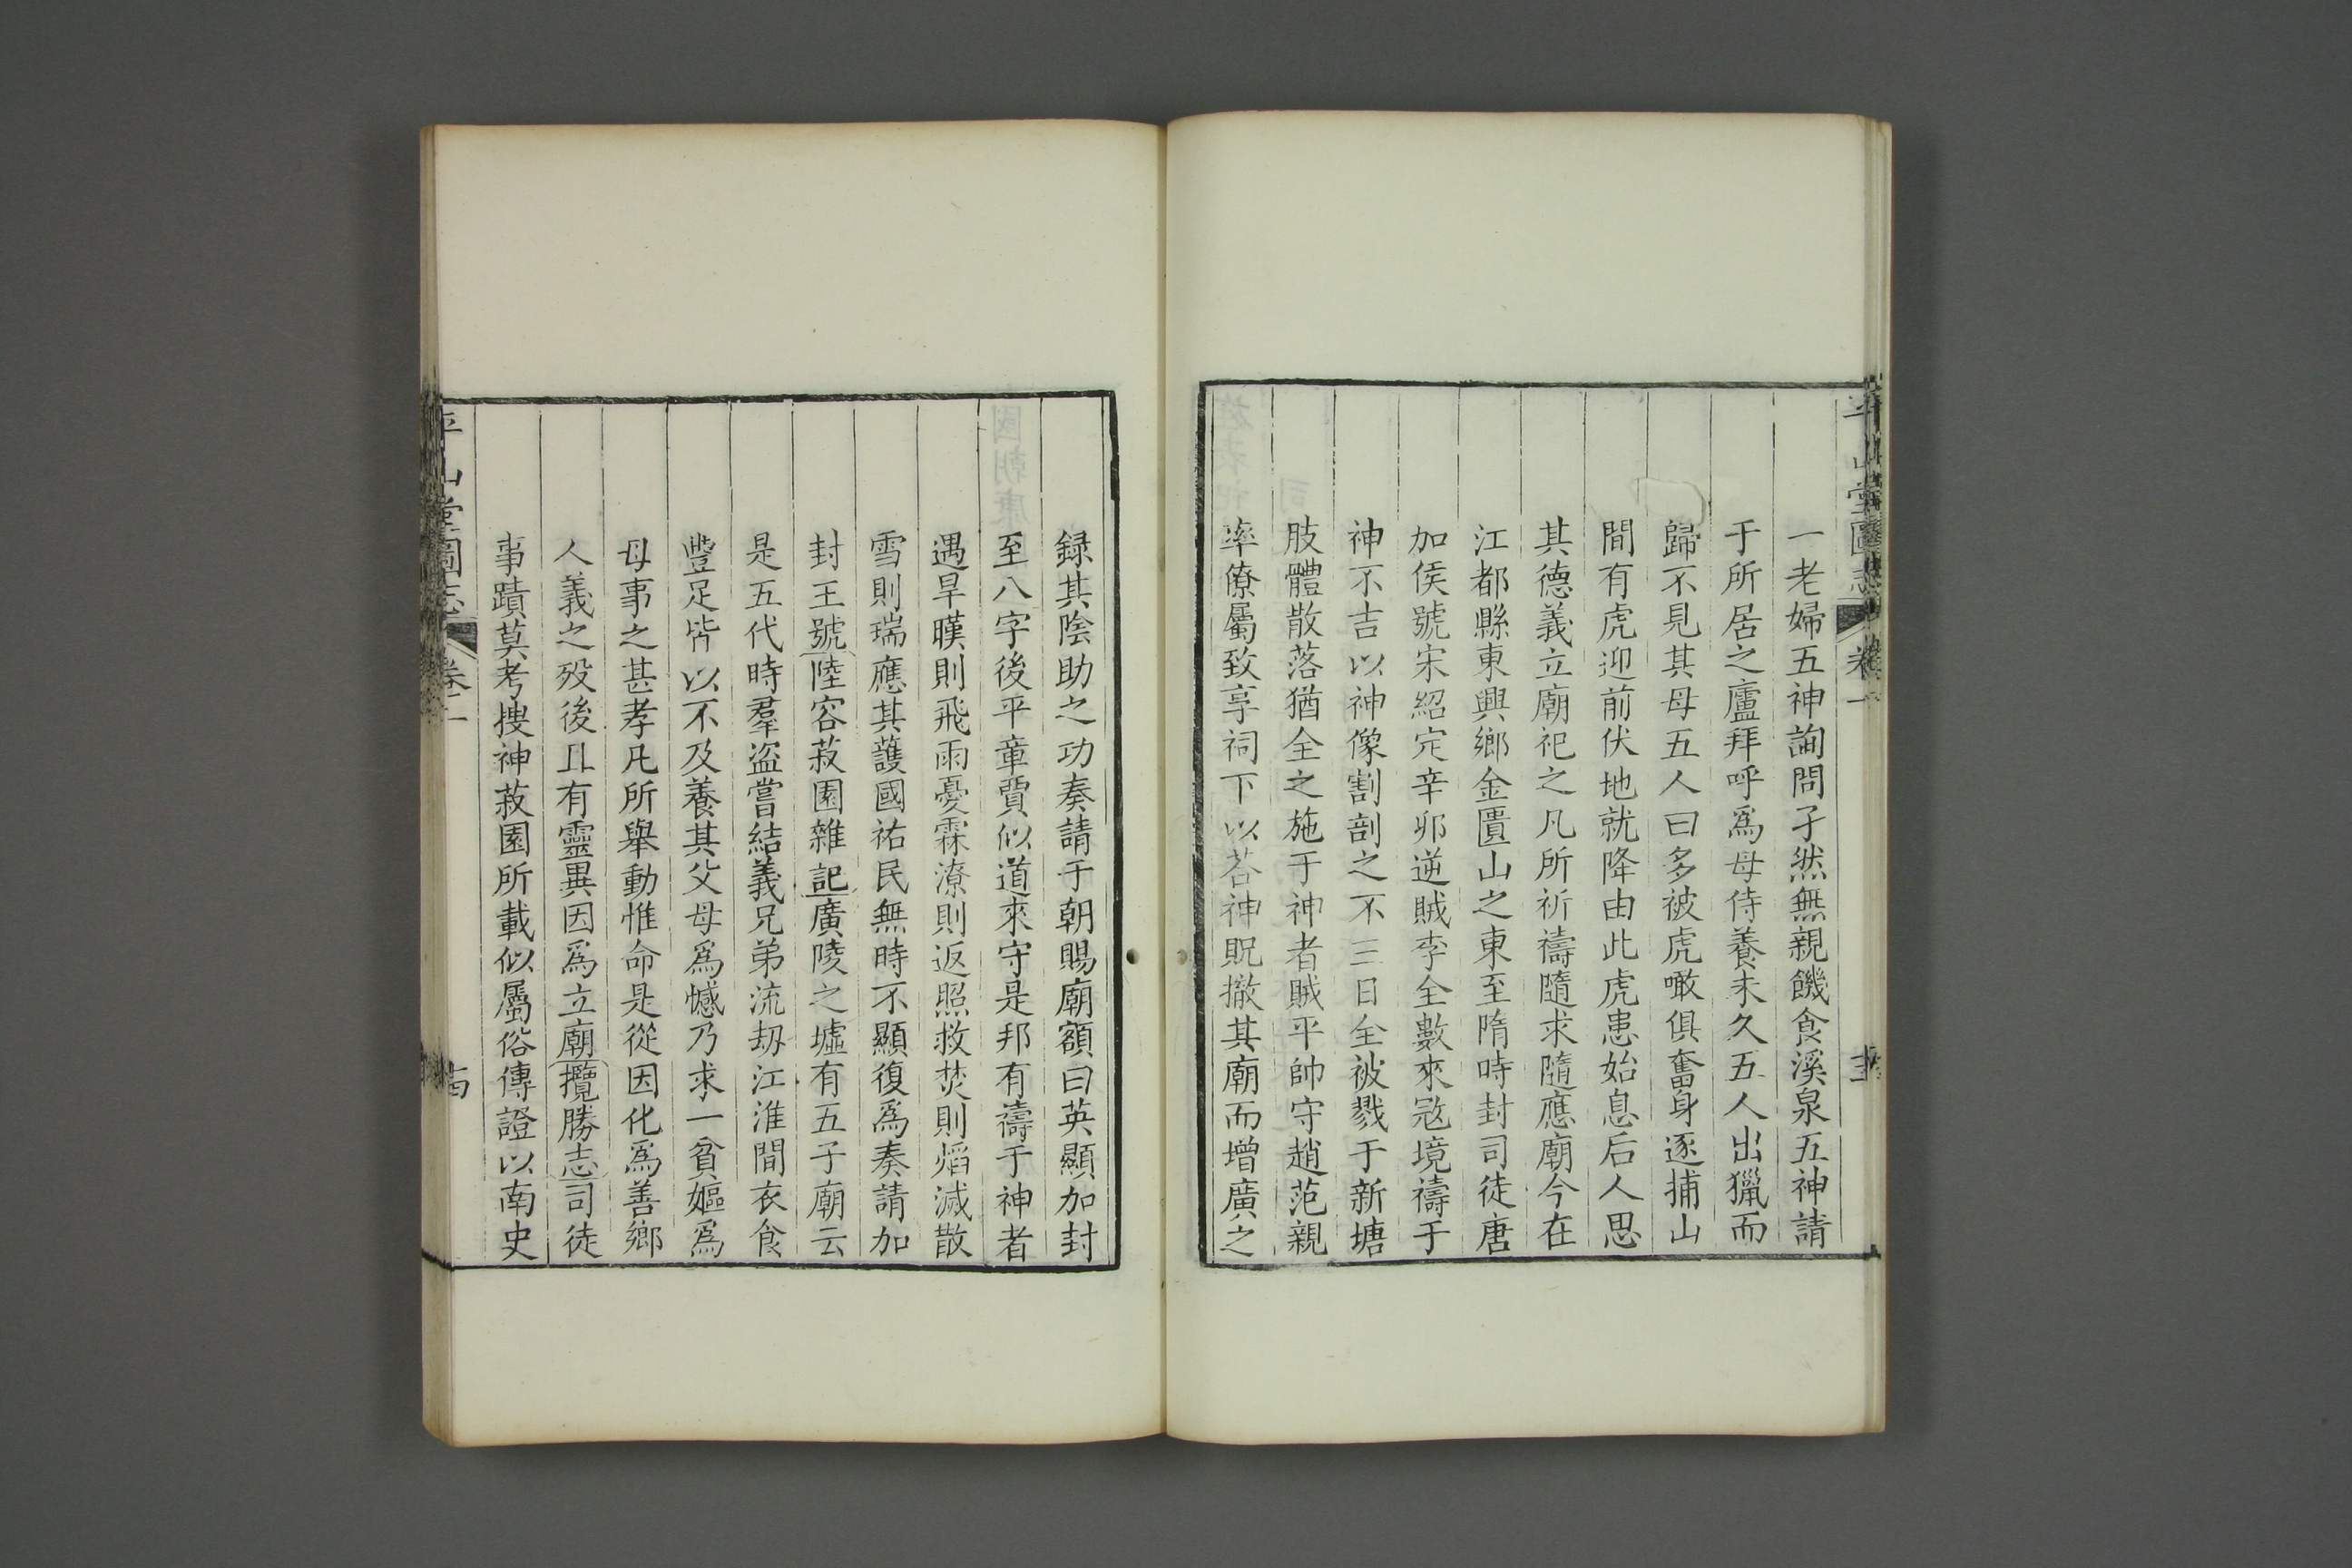 一老婦五神詢問孑然無親饑食溪泉五神請
于所居之廬拜呼爲母侍養未久五人出獵而
歸不見其母五人曰多被虎噉俱奮身逐捕山
間有虎迎前伏地就降由此虎患始息后人思
其德義立廟祀之凡所祈禱隨求隨應廟今在
江都縣東興鄉金匱山之東至隋時封司徒唐
加侯號宋紹定辛卯逆賊李全數來宼境禱于
神不吉以神像割剖之不三日全被戮于新塘
肢體散落猶全之施于神者賊平帥守趙范親
率僚屬致享祠下以荅神貺撤其廟而增廣之
錄其陰助之功奏請于朝賜廟額曰英顯加封
至八字後平章賈似道來守是邦有禱于神者
遇旱暵則飛雨憂霖潦則返照救焚則熖滅散
雪則瑞應其護國祐民無時不顯復爲奏請加
封王號陸容菽園雜記廣陵之墟有五子廟云
是五代時羣盜嘗結義兄弟流刼江淮間衣食
豐足皆以不及養其父母爲憾乃求一貧嫗爲
母事之甚孝凡所舉動惟命是從因化爲善鄉
人義之歿後且有靈異因爲立廟攬勝志司徒
事蹟莫考搜神菽園所載似屬俗傳證以南史
平山堂圖志
卷一